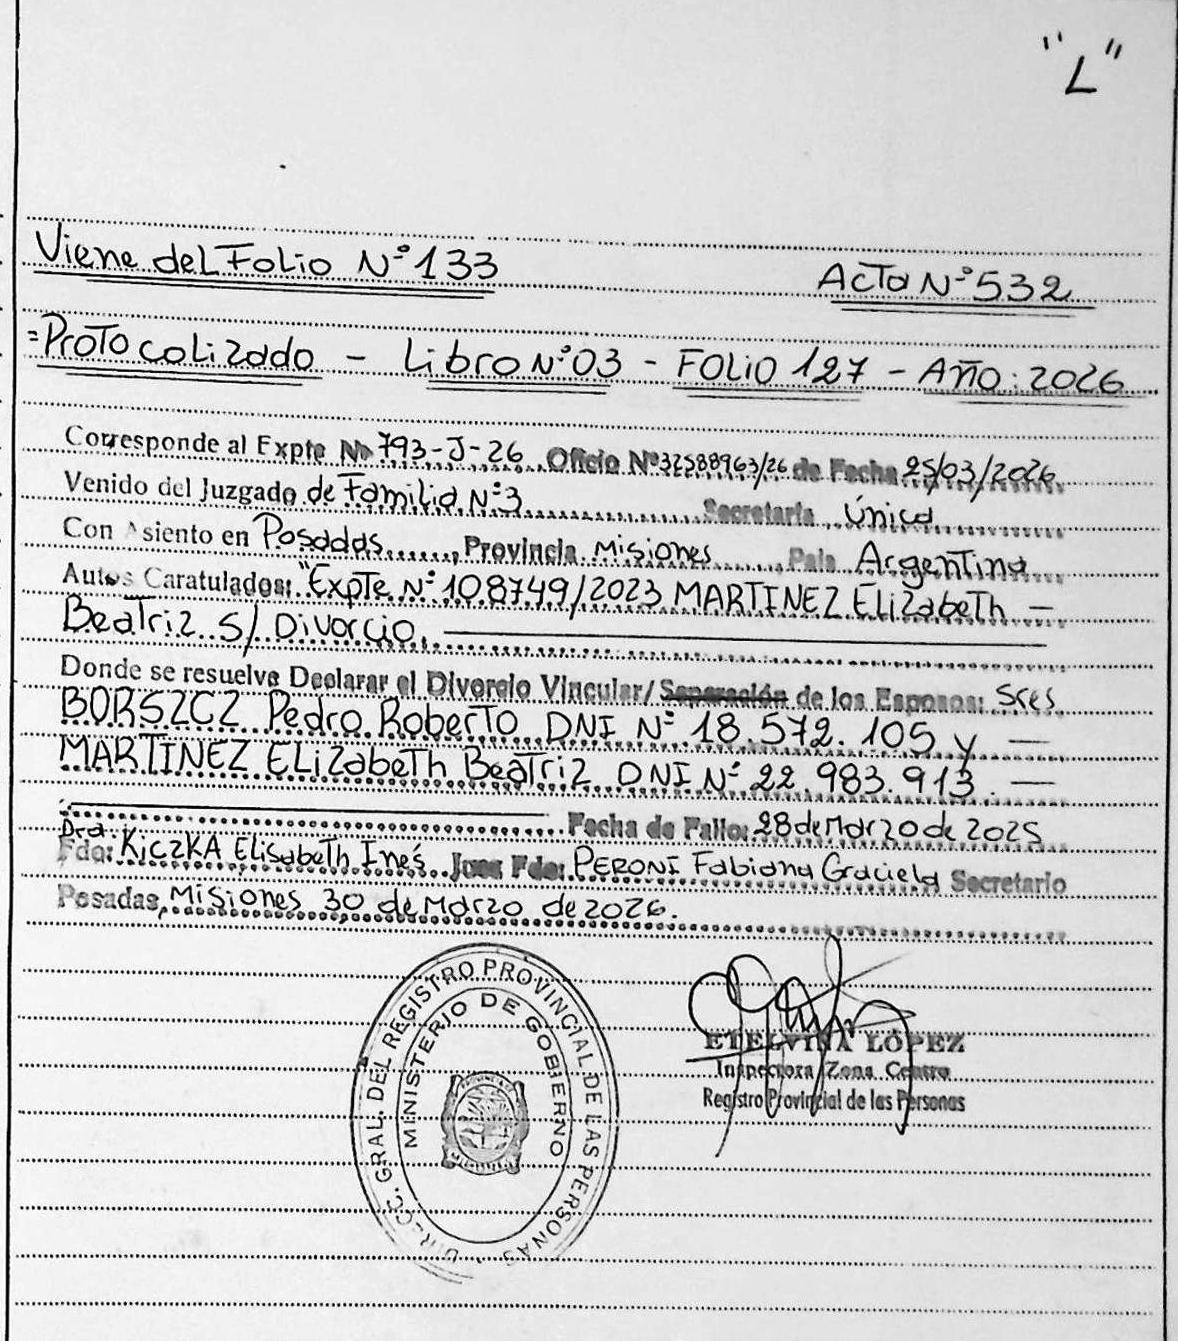 "L"
Viene del Folio N° 133 Acta N° 532
=Protocolizado - Libro N° 03 - Folio 127 - Año: 2026
Corresponde al Expte Nº 793-J-26 Oficio Nº 32588963/26 de Fecha 25/03/2026
Venido del Juzgado de Familia N°3 Secretaría Única
Con Asiento en Posadas, Provincia Misiones País Argentina
Autos Caratulados: "Expte N° 108749/2023 MARTINEZ Elizabeth —
Beatriz S/ Divorcio.
Donde se resuelve Declarar el Divorcio Vincular/Separación de los Esposos: Sres
BORSZCZ Pedro Roberto DNI N° 18.572.105 y —
MARTINEZ Elizabeth Beatriz DNI N° 22.983.913. —
Fecha de Fallo: 28 de Marzo de 2025
Dra.
Fdo: KICZKA Elisabeth Inés Juez Fdo: PERONI Fabiana Graciela Secretario
Posadas, Misiones 30 de Marzo de 2026.
DIRECC. GRAL. DEL REGISTRO PROVINCIAL DE LAS PERSONAS
MINISTERIO DE GOBIERNO
ETELVINA LÓPEZ
Inspectora Zona Centro
Registro Provincial de las Personas